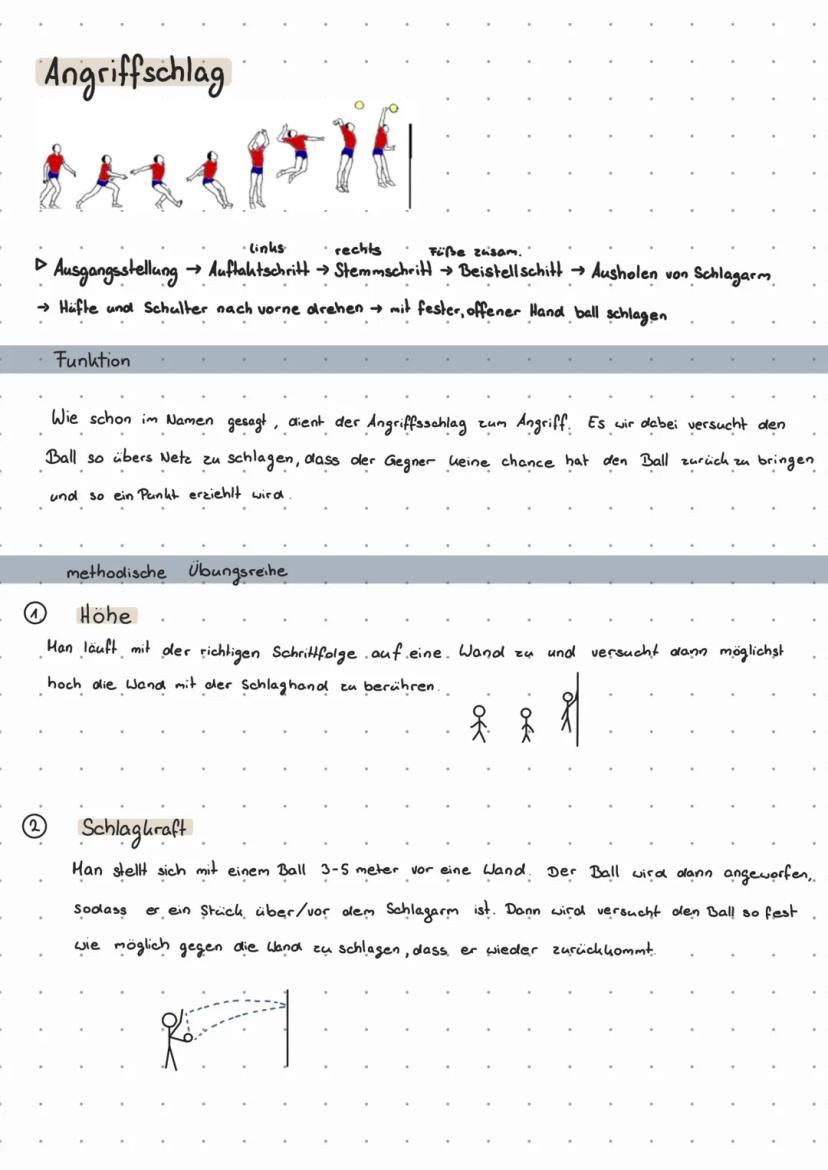 Angriffschlag
links rechts Füße zusam.
▷ Ausgangsstellung → Auftaktschritt → Stemmschritt → Beistellschitt → Ausholen von Schlagarm
→ Hüfte und Schulter nach vorne drehen → mit fester, offener Hand ball schlagen
Funktion
Wie schon im Namen gesagt, dient der Angriffsschlag zum Angriff. Es wir dabei versucht den
Ball so übers Netz zu schlagen, dass der Gegner keine chance hat den Ball zurück zu bringen
und so ein Punkt erziehlt wird.
methodische Übungsreihe
① Höhe
Man läuft mit der richtigen Schrittfolge auf eine Wand zu und versucht dann möglichst
hoch die Wand mit der Schlaghand zu berühren.
② Schlagkraft
Man stellt sich mit einem Ball 3-5 meter vor eine Wand. Der Ball wird dann angeworfen,
sodass er ein Stück über/vor dem Schlagarm ist. Dann wird versucht den Ball so fest
wie möglich gegen die Wand zu schlagen, dass er wieder zurückkommt.